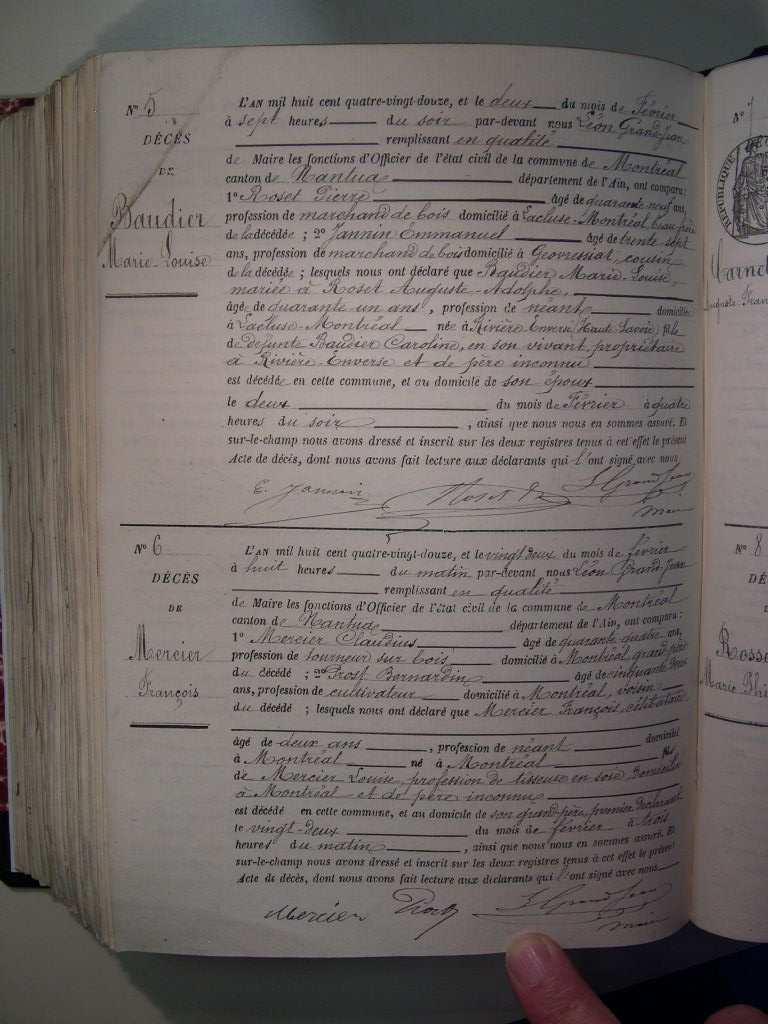 N° 5
DÉCÈS
DE
Baudier
Marie-Louise
L'AN mil huit cent quatre-vingt-douze, et le deux du mois de Février
à sept heures du soir par-devant nous Léon Grandjean
remplissant en qualité
de Maire les fonctions d'Officier de l'état civil de la commune de Montréal
canton de Nantua département de l'Ain, ont comparu:
1° Roset Pierre âgé de quarante neuf ans,
profession de marchand de bois domicilié à Lacluse-Montréal beau-frère
de la décédée ; 2° Jannin Emmanuel âgé de trente sept
ans, profession de marchand de bois domicilié à Geovressiat, cousin
de la décédée ; lesquels nous ont déclaré que Baudier Marie-Louise,
mariée à Roset Auguste-Adolphe,
âgée de quarante un ans, profession de néant domiciliée
à Lacluse-Montréal née à Rivière Enverse (Haute Savoie) fille
de défunte Baudier Caroline, en son vivant propriétaire
à Rivière-Enverse et de père inconnu
est décédée en cette commune, et au domicile de son époux
le deux du mois de Février à quatre
heures du soir, ainsi que nous nous en sommes assuré. Et
sur-le-champ nous avons dressé et inscrit sur les deux registres tenus à cet effet le présent
Acte de décès, dont nous avons fait lecture aux déclarants qui l'ont signé avec nous
E. Jannin Roset L Grandjean
maire
N° 6
DÉCÈS
DE
Mercier
François
L'AN mil huit cent quatre-vingt-douze, et le vingt deux du mois de février
à huit heures du matin par-devant nous Léon Grand-Jean
remplissant en qualité
de Maire les fonctions d'Officier de l'état civil de la commune de Montréal
canton de Nantua département de l'Ain, ont comparu:
1° Mercier Claudius âgé de quarante quatre ans,
profession de tourneur sur bois domicilié à Montréal, grand-père
du décédé ; 2° Prost Bernardin âgé de cinquante
ans, profession de cultivateur domicilié à Montréal, voisin
du décédé ; lesquels nous ont déclaré que Mercier François, célibataire
âgé de deux ans, profession de néant domicilié
à Montréal né à Montréal fils
de Mercier Louise, profession de tisseuse en soie domiciliée
à Montréal et de père inconnu
est décédé en cette commune, et au domicile de son grand-père, premier déclarant
le vingt-deux du mois de février à trois
heures du matin, ainsi que nous nous en sommes assuré. Et
sur-le-champ nous avons dressé et inscrit sur les deux registres tenus à cet effet le présent
Acte de décès, dont nous avons fait lecture aux déclarants qui l'ont signé avec nous
Mercier Prost L Grand Jean
maire
N° 7
RÉPUBLIQUE
N° 8
DÉ